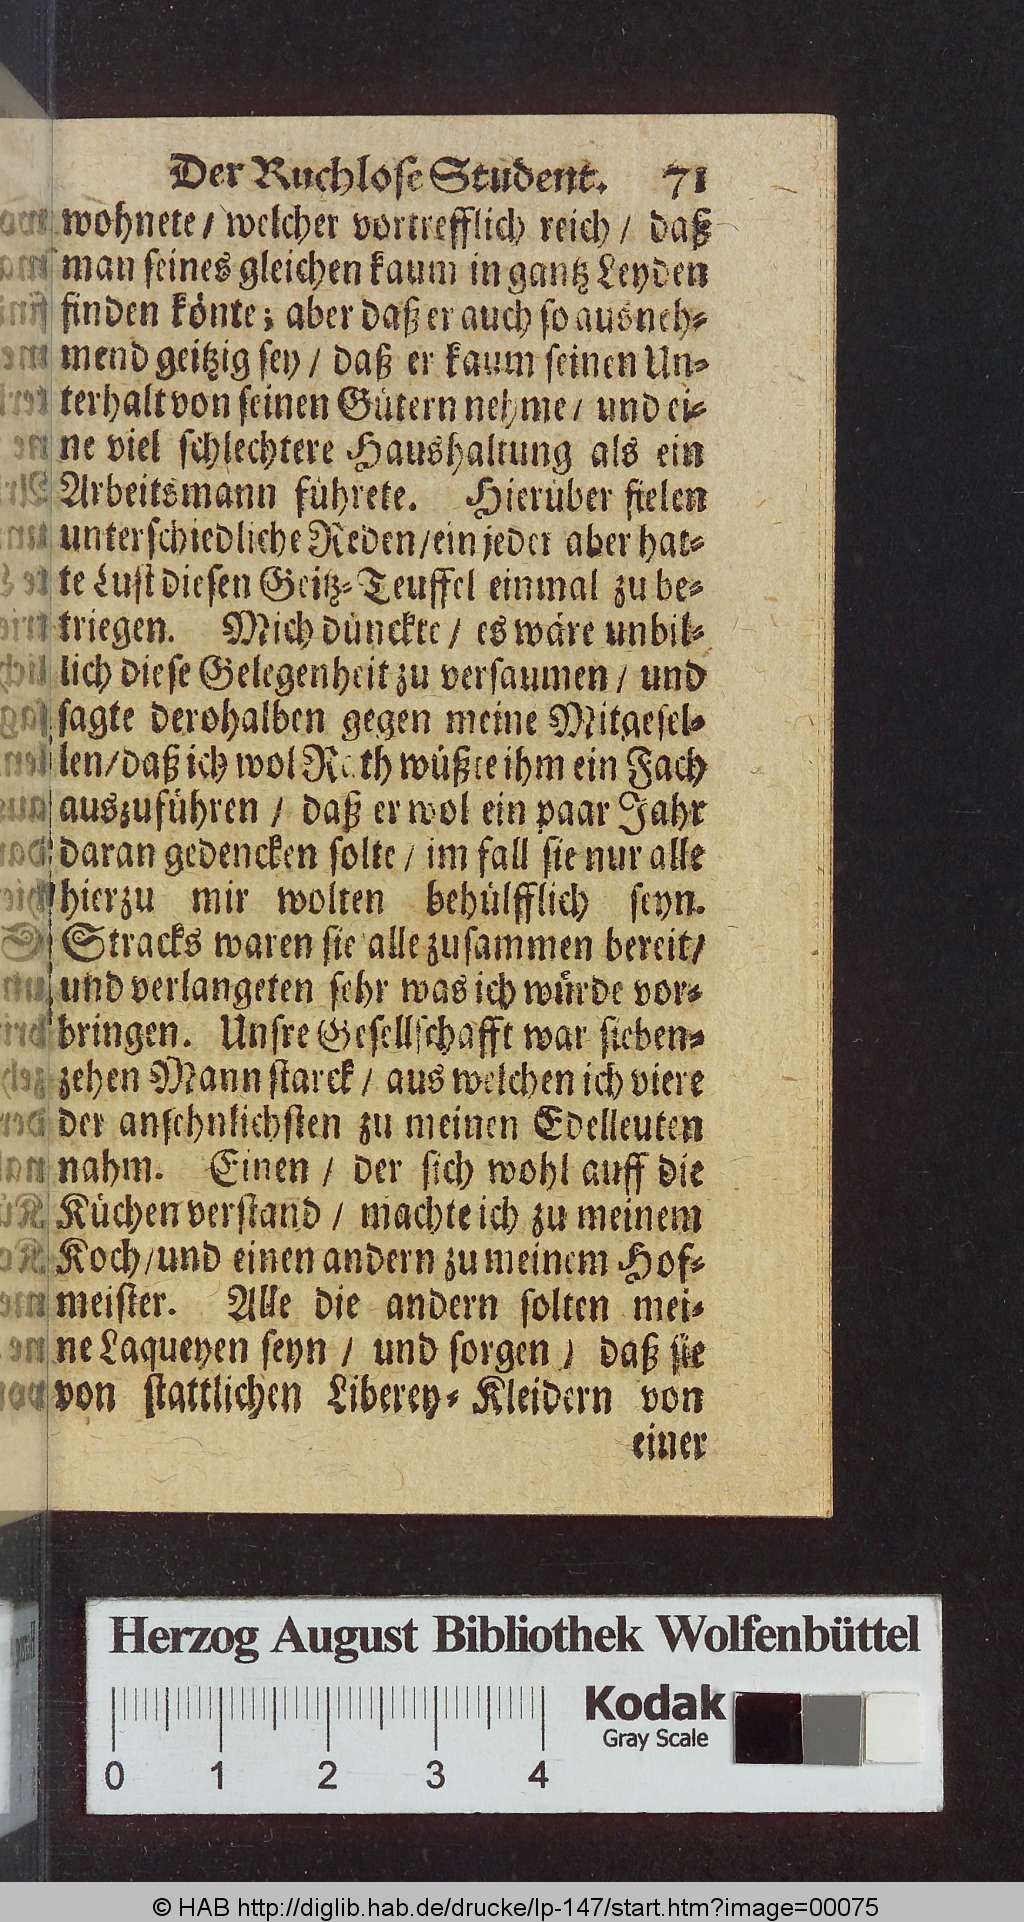 Der Ruchlose Student. 71
wohnete / welcher vortrefflich reich / daß
man seines gleichen kaum in gantz Leyden
finden könte; aber daß er auch so ausneh-
mend geitzig sey / daß er kaum seinen Un-
terhalt von seinen Gütern nehme / und ei-
ne viel schlechtere Haushaltung als ein
Arbeitsmann führete. Hierüber fielen
unterschiedliche Reden / ein jeder aber hat-
te Lust diesen Geitz-Teuffel einmal zu be-
triegen. Mich dünckte / es wäre unbil-
lich diese Gelegenheit zu versaumen / und
sagte derohalben gegen meine Mitgesel-
len / daß ich wol Rath wüßte ihm ein Fach
auszuführen / daß er wol ein paar Jahr
daran gedencken solte / im fall sie nur alle
hierzu mir wolten behülfflich seyn.
Stracks waren sie alle zusammen bereit /
und verlangeten sehr was ich würde vor-
bringen. Unsre Gesellschafft war sieben-
zehen Mann starck / aus welchen ich viere
der ansehnlichsten zu meinen Edelleuten
nahm. Einen / der sich wohl auff die
Küchen verstand / machte ich zu meinem
Koch / und einen andern zu meinem Hof-
meister. Alle die andern solten mei-
ne Laqueyen seyn / und sorgen / daß sie
von stattlichen Liberey-Kleidern von
einer
Herzog August Bibliothek Wolfenbüttel
Kodak
Gray Scale
0 1 2 3 4
© HAB http://diglib.hab.de/drucke/lp-147/start.htm?image=00075